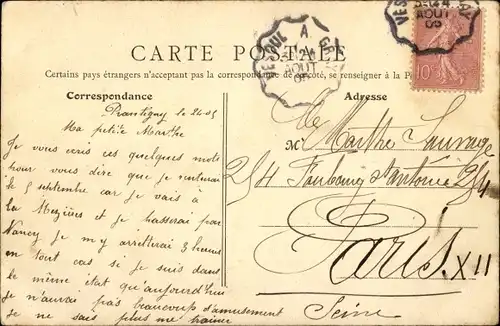 VESOUL A GRAY
AOUT
VESOUL GRAY
AOUT
10c
CARTE POSTALE
Certains pays étrangers n'acceptant pas la correspondance de ce côté, se renseigner à la P
Correspondance
Adresse
Rantigny le 24-05
Ma petite Marthe
Je vous ecris ces quelques mots
pour vous dire que je rentrerai
le 5 septembre car je vais à
la Mezières et je passerai par
Nancy je m'y arretterai 3 heures
en tout cas si je suis dans
le même état qu'aujourd'hui
je n'aurai pas beaucoup d'amusement
je ne sais plus me trainer
M Marthe Sauvage
254 Faubourg St antoine 254
Paris XII
Seine